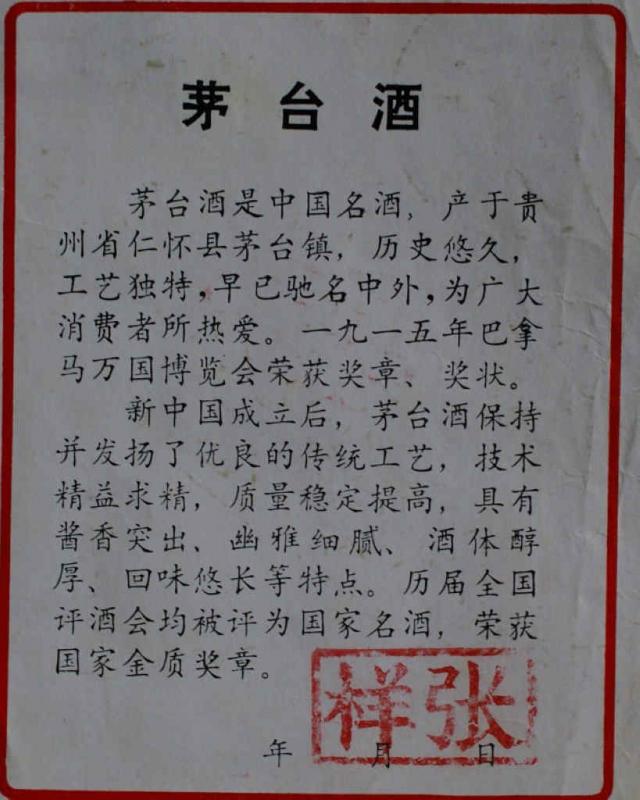 茅台酒
茅台酒是中国名酒，产于贵
州省仁怀县茅台镇，历史悠久，
工艺独特，早已驰名中外，为广大
消费者所热爱。一九一五年巴拿
马万国博览会荣获奖章、奖状。
新中国成立后，茅台酒保持
并发扬了优良的传统工艺，技术
精益求精，质量稳定提高，具有
酱香突出、幽雅细腻、酒体醇
厚、回味悠长等特点。历届全国
评酒会均被评为国家名酒，荣获
国家金质奖章。
样张
年 月 日